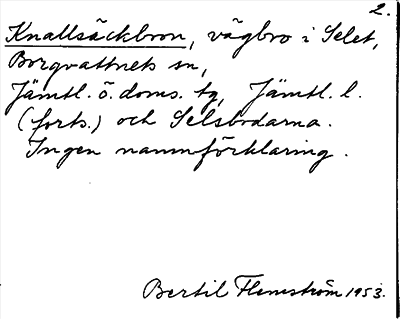 2.
Knallsäckbron, vägbro i Selet,
Borgvattnets sn,
Jämtl. ö. doms. tg, Jämtl. l.
(forts.) och Selsbodarna.
Ingen namnförklaring.
Bertil Flemström 1953.